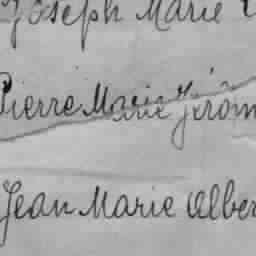 Joseph Marie
Pierre Marie Jérôm
Jean Marie Alber